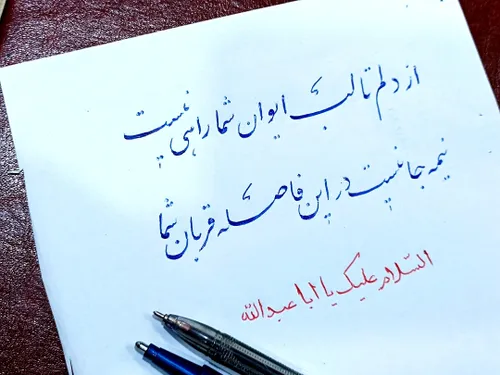 از دلم تا لب ایوان شما راهی نیست
نیمه جانیست در این فاصله قربان شما
السلام علیک یا ابا عبدالله